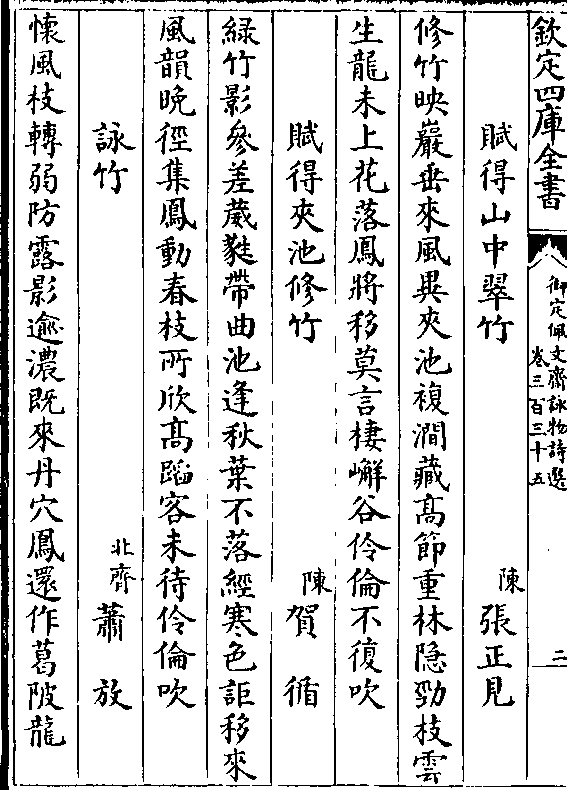 欽定四庫全書
御定佩文齋詠物詩選
卷三百三十五
二
賦得山中翠竹
陳張正見
修竹映巖垂來風異夾池複澗藏高節重林隱勁枝雲
生龍未上花落鳳將移莫言棲嶰谷伶倫不復吹
賦得夾池修竹
陳賀循
綠竹影參差葳蕤帶曲池逢秋葉不落經寒色詎移來
風韻晩徑集鳳動春枝所欣高蹈客未待伶倫吹
詠竹
北齊蕭放
懷風枝轉弱防露影逾濃既來丹穴鳳還作葛陂龍